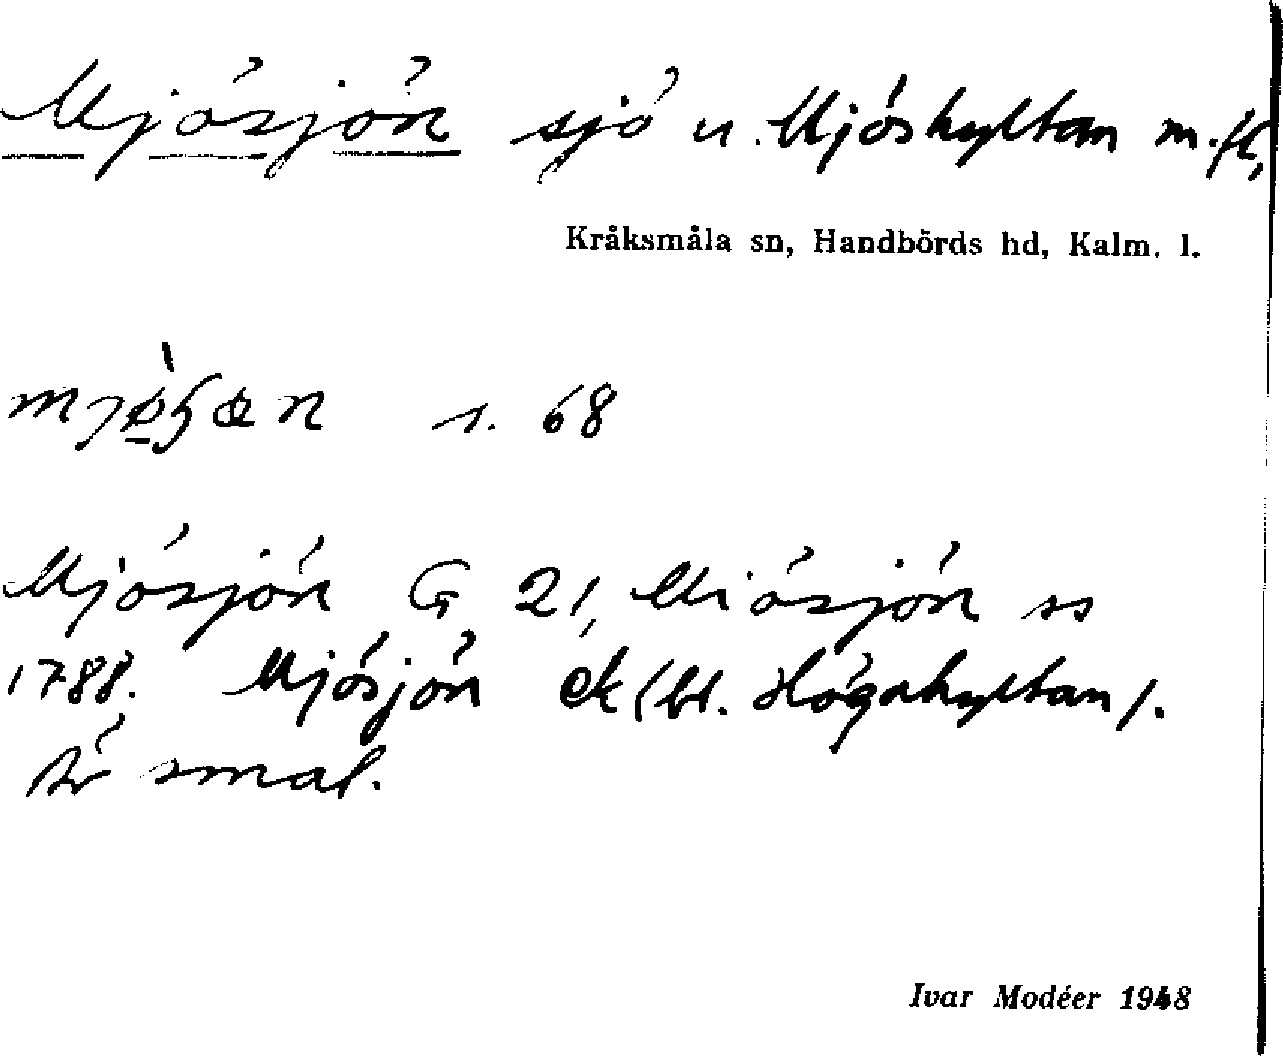 Mjösjön sjö u. Mjöshyltan m.fl,
Kråksmåla sn, Handbörds hd, Kalm. l.
mjøɧœn s. 68
Mjösjön G 21, Miösjön ss
1788. Mjösjön ek (bl. Högahyltan).
Är smal.
Ivar Modéer 1948